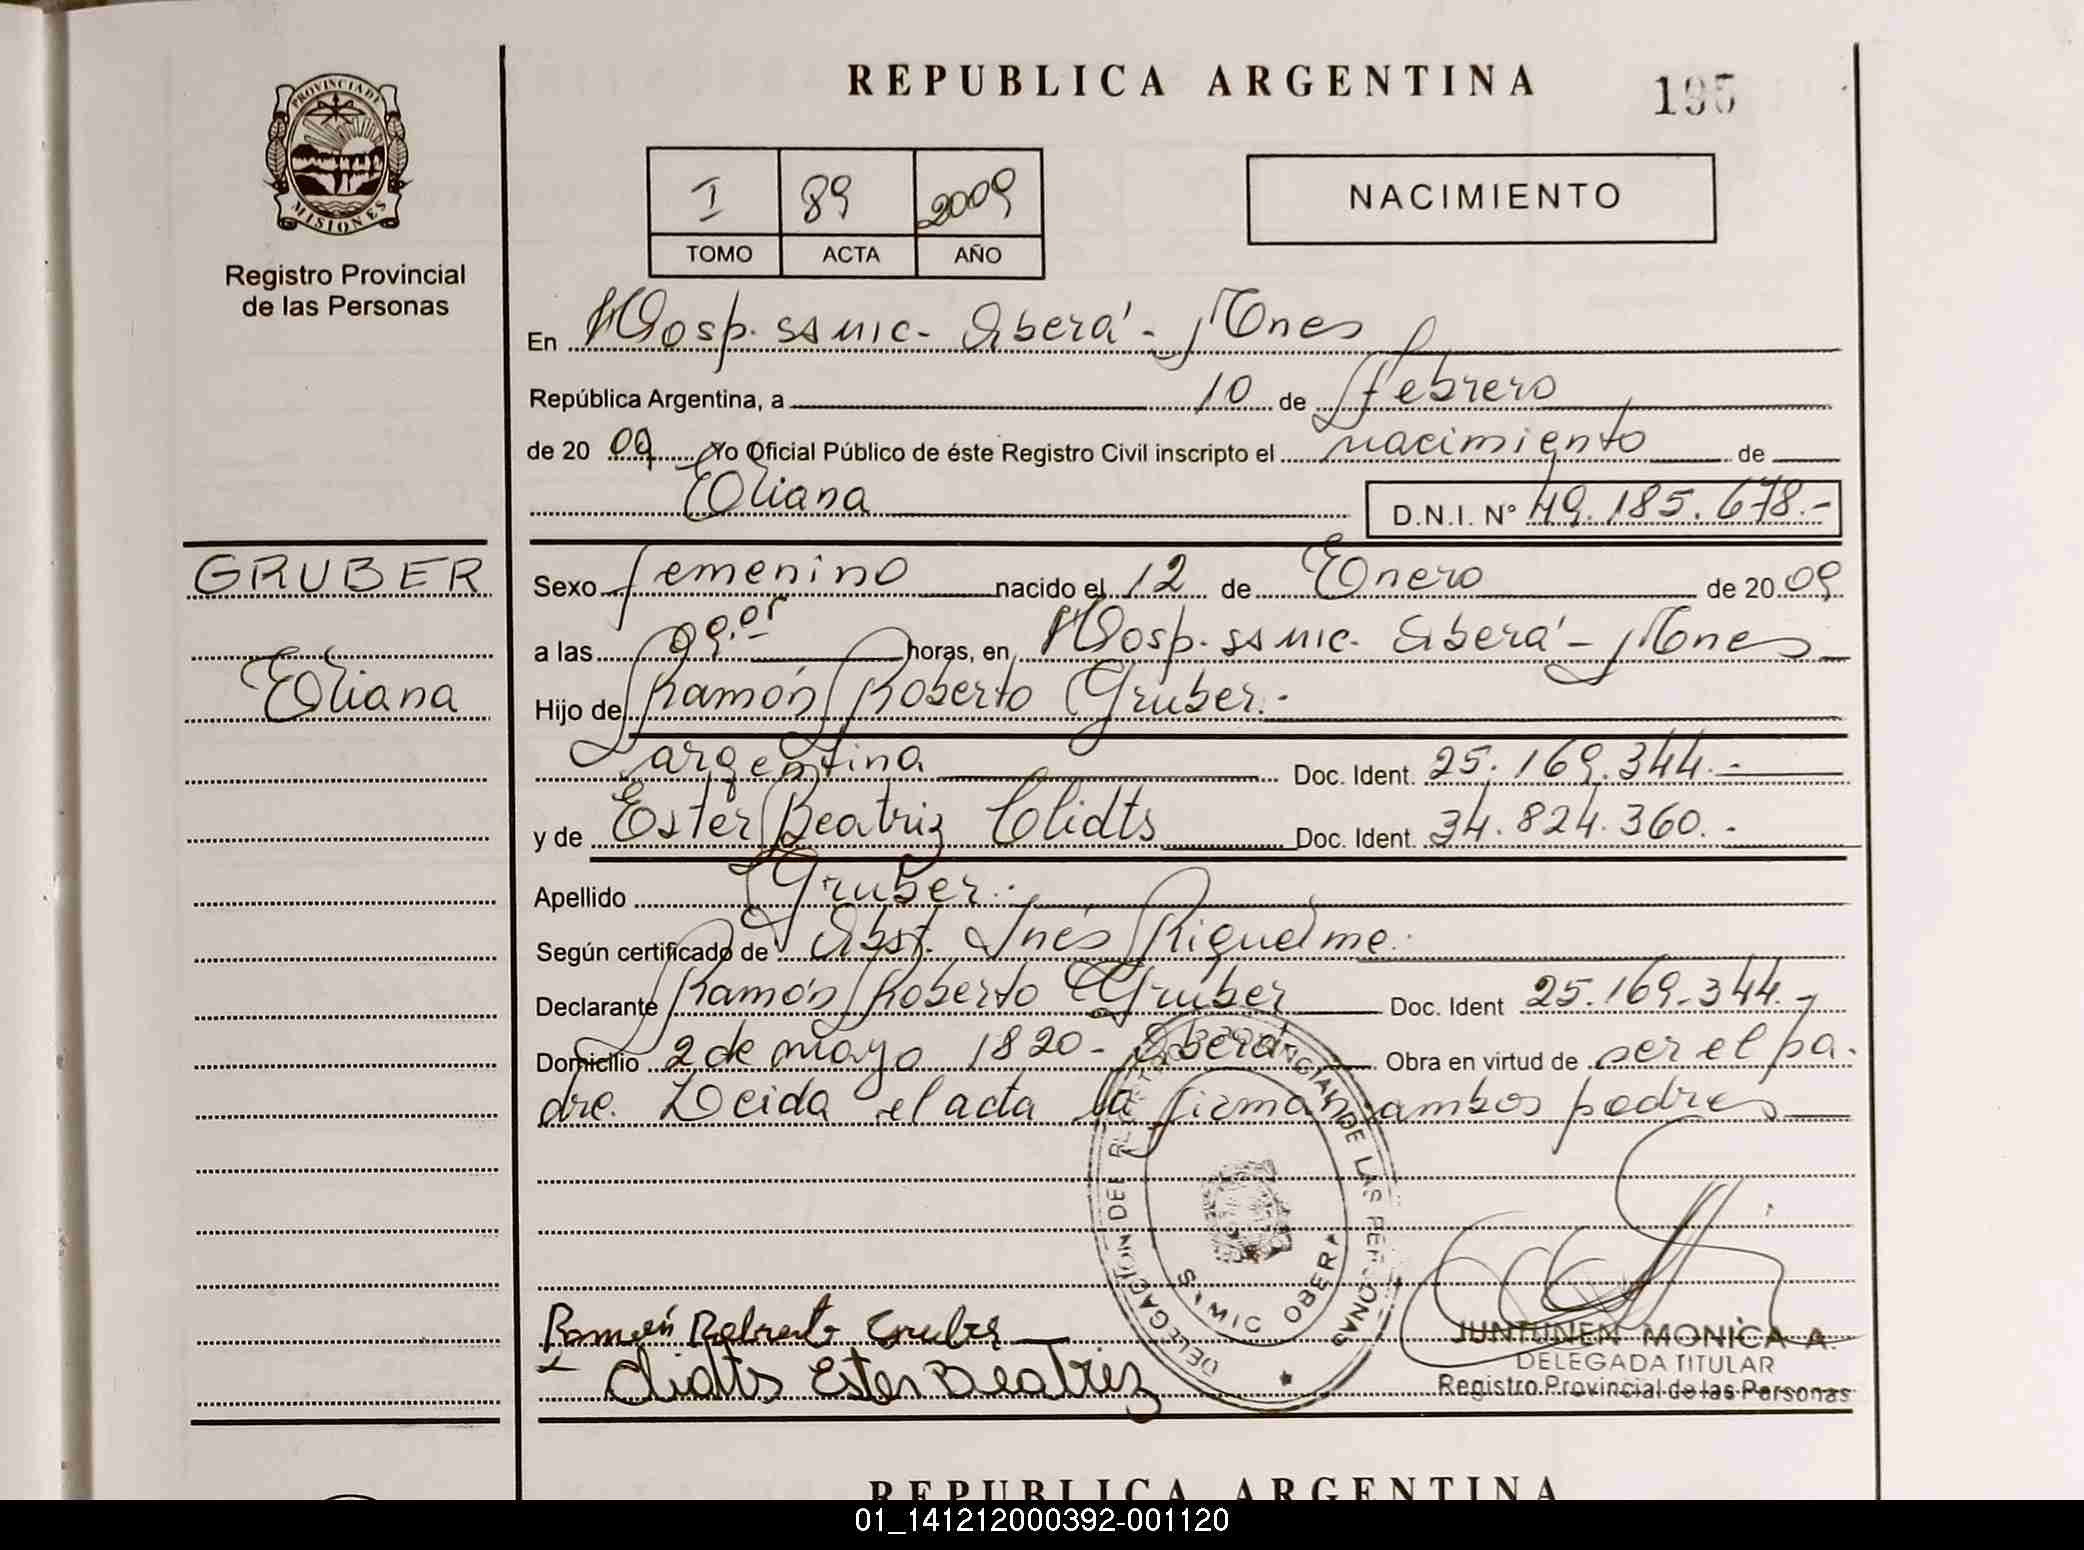 REPUBLICA ARGENTINA
195
PROVINCIA DE
MISIONES
Registro Provincial
de las Personas
I 89 2009
TOMO ACTA AÑO
NACIMIENTO
En Hosp. SAMIC - Oberá - Mnes
República Argentina, a 10 de febrero
de 20 09 Yo Oficial Público de éste Registro Civil inscripto el nacimiento de
Eliana D.N.I. N° 49.185.678.-
GRUBER
Eliana
Sexo femenino nacido el 12 de Enero de 20 09
a las horas, en Hosp. SAMIC - Oberá - Mnes
Hijo de Ramón Roberto Gruber.-
argentina Doc. Ident. 25.169.344.-
y de Ester Beatriz Clidts Doc. Ident. 34.824.360.-
Apellido Gruber.-
Según certificado de Obst. Inés Riquelme.
Declarante Ramón Roberto Gruber Doc. Ident 25.169.344.-
Domicilio 2 de mayo 1820 - Oberá Obra en virtud de ser el pa-
dre. Leida el acta la firman ambos padres
DELEGACIÓN DEL REGISTRO PROVINCIAL DE LAS PERSONAS
SAMIC OBERA
Ramón Roberto Gruber
Clidts Ester Beatriz
JUNTUNEN MONICA A.
DELEGADA TITULAR
Registro Provincial de las Personas
REPUBLICA ARGENTINA
01_141212000392-001120